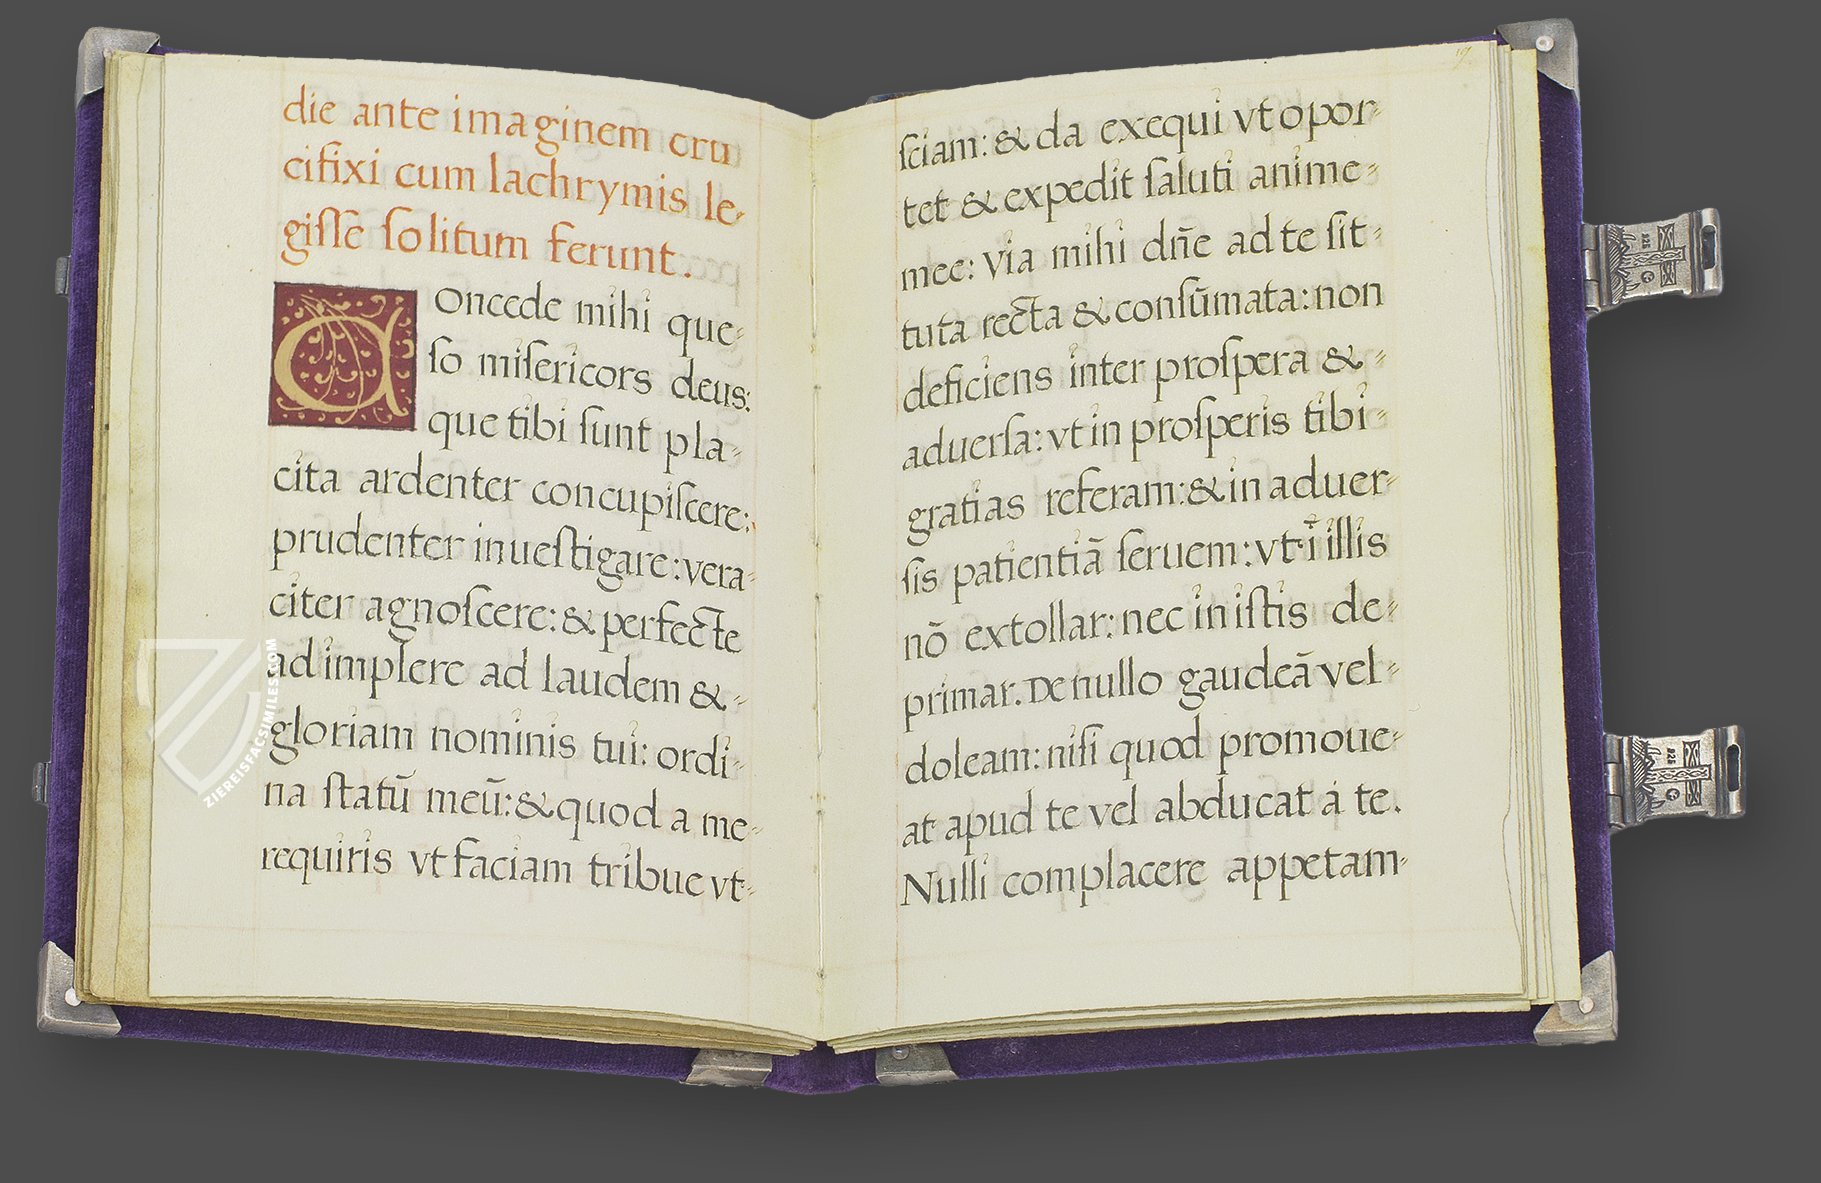 die ante imaginem cru
cifixi cum lachrymis le-
giſſe ſolitum ferunt.
Concede mihi que-
ſo miſericors deus:
que tibi ſunt pla-
cita ardenter concupiſcere:
prudenter inueſtigare: vera-
citer agnoſcere: & perfecte
adimplere ad laudem &-
gloriam nominis tui: ordi-
na ſtatū meū: & quod a me-
requiris vt faciam tribue vt-
ſciam: & da exequi vt opor-
tet & expedit ſaluti anime-
mee: Via mihi dn̄e ad te ſit-
tuta recta & conſūmata: non
deficiens inter proſpera &-
aduerſa: vt in proſperis tibi-
gratias referam: & in aduer-
ſis patientiā ſeruem: vt ī illis
nō extollar: nec in iſtis de-
primar. De nullo gaudeā vel-
doleam: niſi quod promoue-
at apud te vel abducat á te.
Nulli complacere appetam-
ZIEREISFACSIMILES.COM
925
925